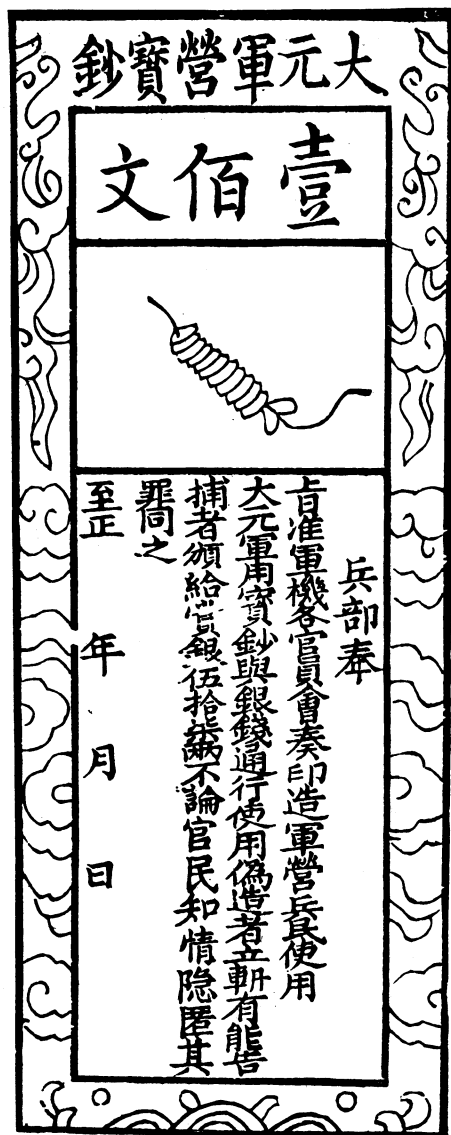 大元軍營寶鈔
壹佰文
兵部奉
旨准軍機各官員會奏印造軍營兵民使用
大元軍用寶鈔與銀錢通行使用偽造者立斬有能告
捕者頒給賞銀伍拾兩不論官民知情隐匿其
罪同之
至正 年 月 日